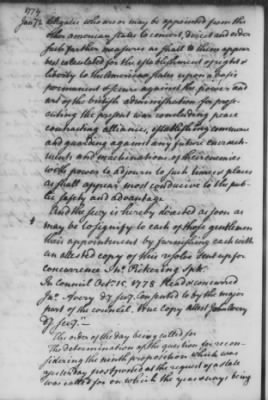 1779
Jany 2 Delegates who are or may be appointed from the
other american states to concert, direct and order
such further measures as shall to them appear
best calculated for the establishment of rights &
liberty to the American states upon a basis
permanent & secure against the power and
art of the british administration for prose-
cuting the present war concluding peace
contracting alliances, establishing commerce
and guarding against any future encroach-
ments and machinations of their enemies
with power to adjourn to such times & places
as shall appear most conducive to the pub-
lic safety and advantage
And the secy is hereby directed as soon as
may be to signify to each of those gentlemen
their appointment by furnishing each with
an attested copy of this resolve sent up for
concurrence Jno. Pickering Spkr
In Council Oct. 15. 1778 Read & concurred
Jno. Avery Dy secy. Consented to by the major
part of the council. True copy attest John Avery
Dy secy.
The order of the day being called for
The determination of the question for recon-
sidering the ninth proposition which was
yesterday postponed at the request of a state
was called for on which the yeas & nays being